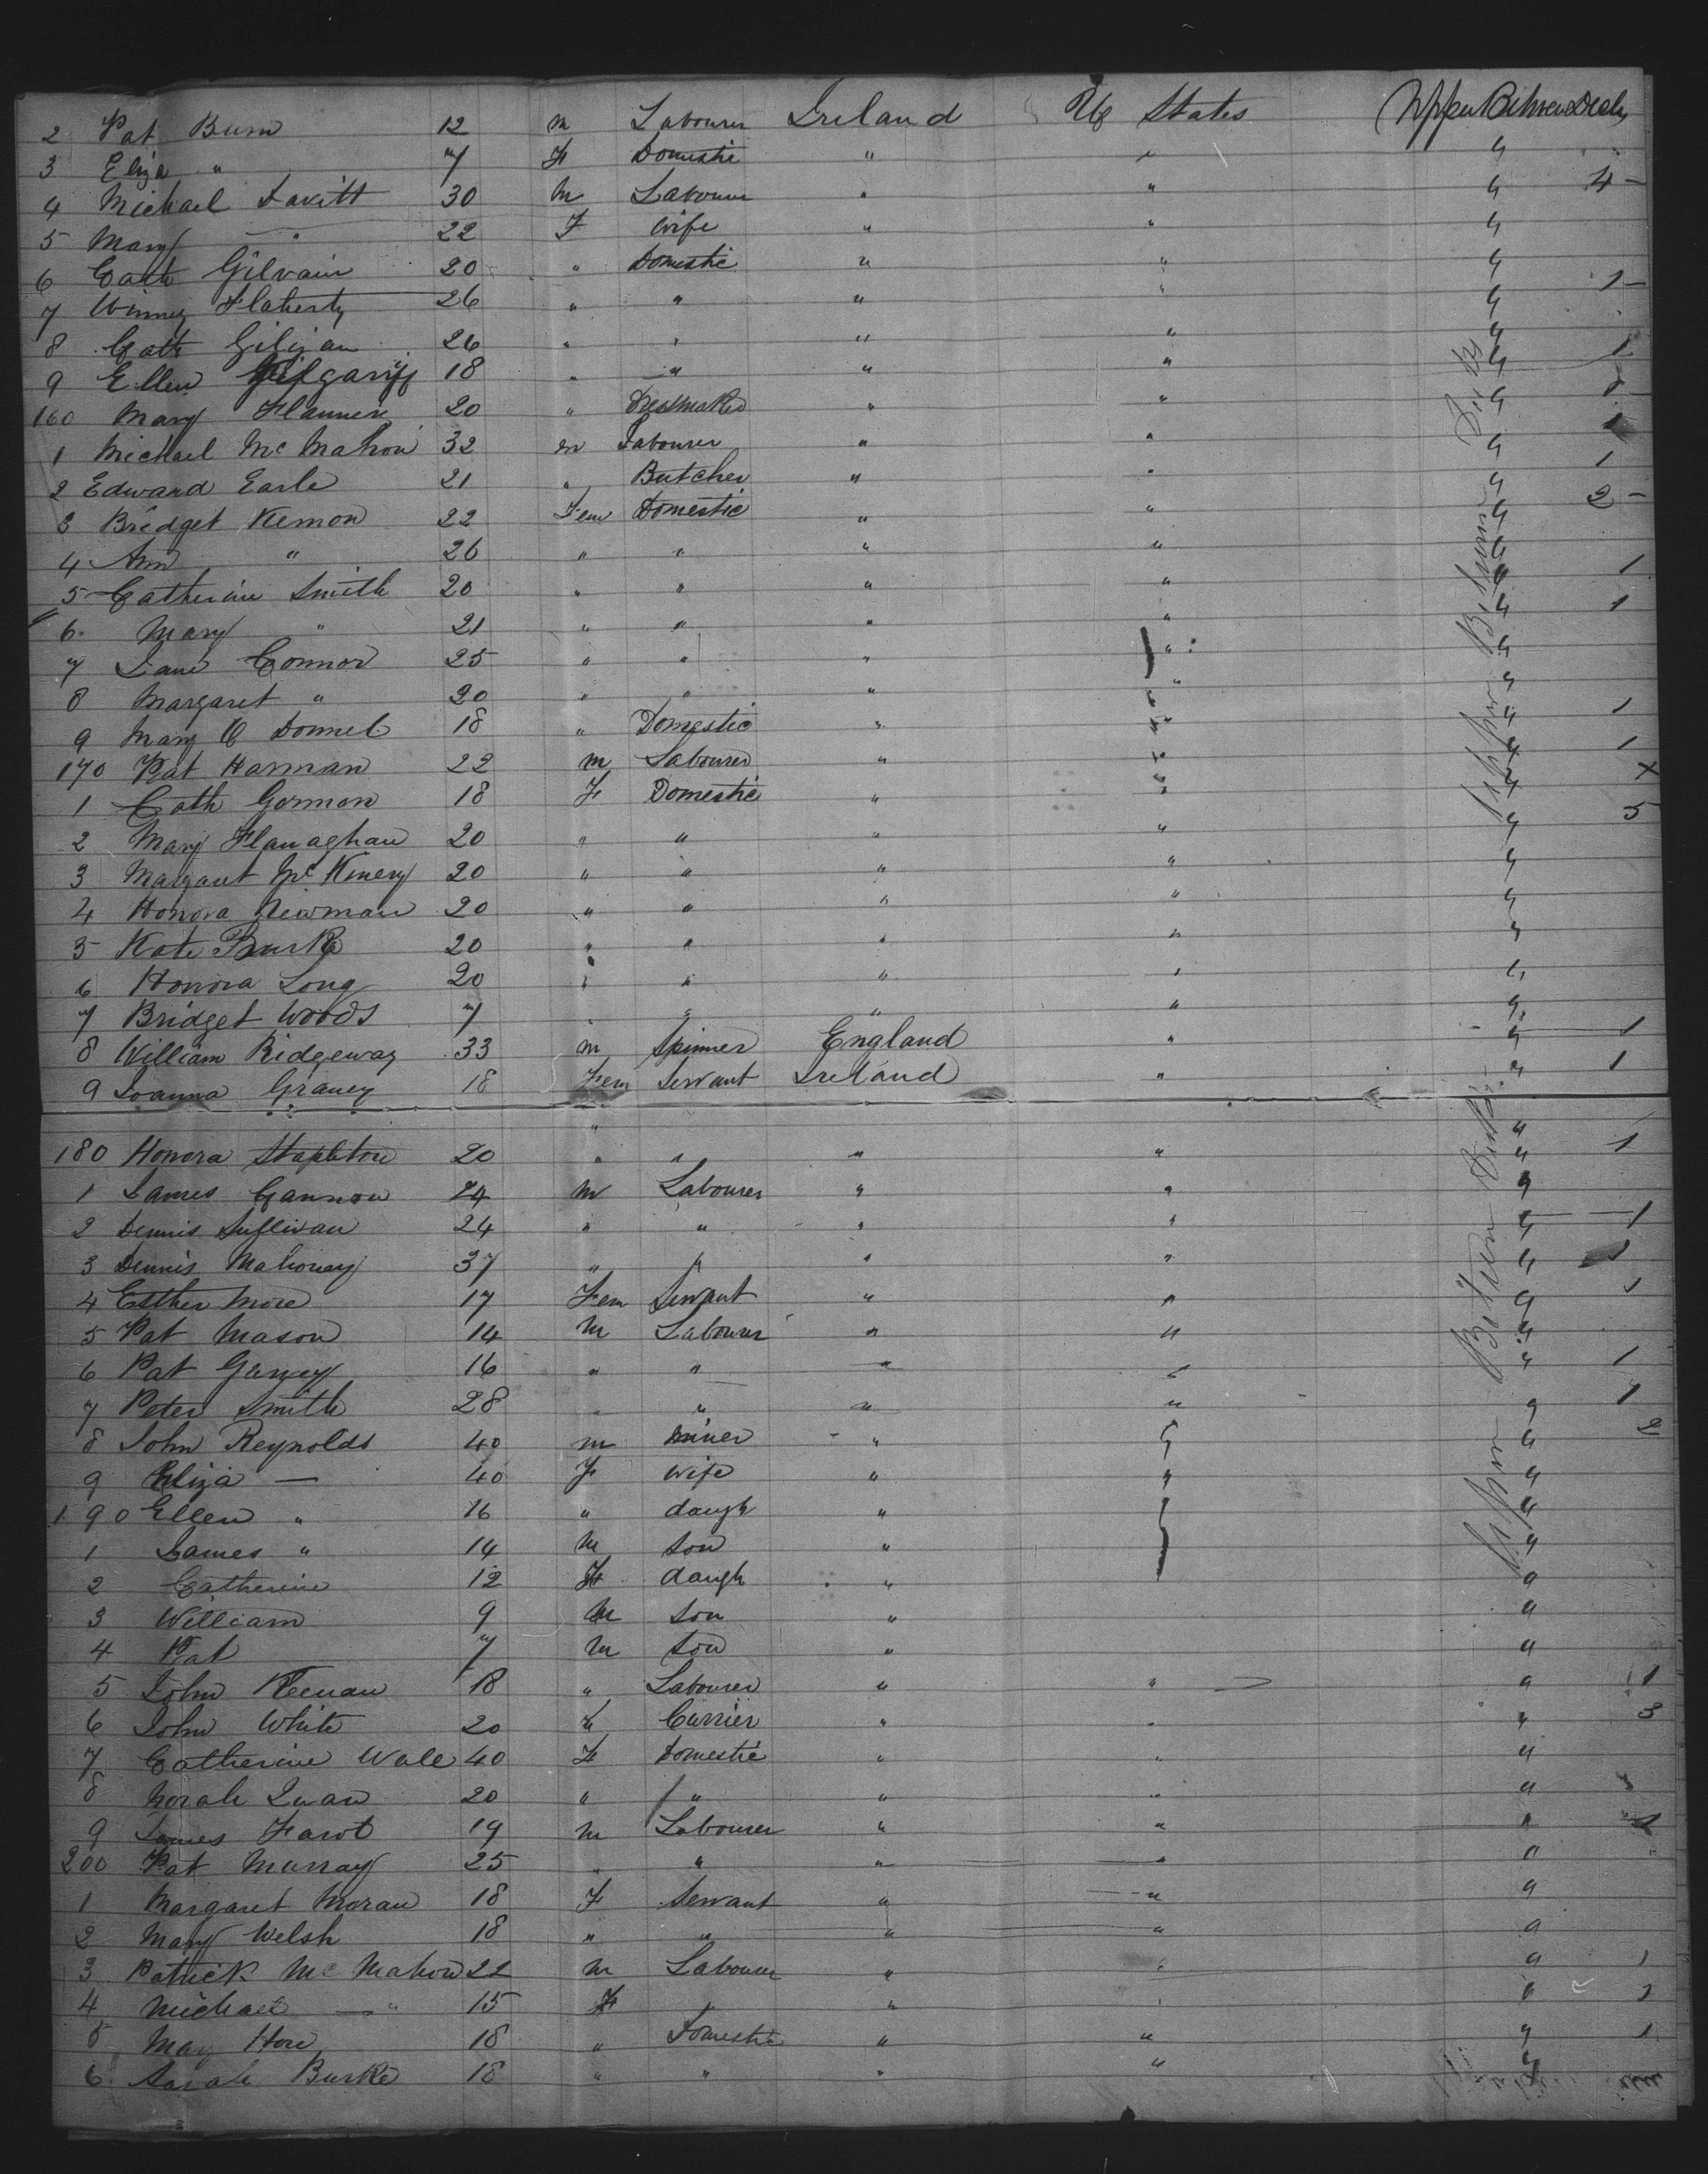 2 Pat Burn 12 m Labourer Ireland U States Upper Between Decks
3 Eliza " 7 F Domestic " " "
4 Michael Davitt 30 m Labourer " " " 4 -
5 Mary " 22 F Wife " " "
6 Cath Gilvain 20 " Domestic " " "
7 Winney Flaherty 26 " " " " " 1 -
8 Cath Giligan 26 " " " " "
9 Ellen 18 " " " " " 1
160 Mary Flannery 20 " Dressmaker " " " 1
1 Michael Mc Mahon 32 m Labourer " " " 1
2 Edward Earle 21 " Butcher " " " 1
3 Bridget Kernon 22 Fem Domestic " " " 2 -
4 Ann " 26 " " " " "
5 Catherine Smith 20 " " " " " 1
6 Mary " 21 " " " " " 1
7 Jane Connor 25 " " " " "
8 Margaret " 20 " " " " "
9 Mary O Donnel 18 " Domestic " " " 1
170 Pat Harman 22 m Labourer " " " 1
1 Cath Gorman 18 F Domestic " " " X
2 Mary Flanaghan 20 " " " " " 5
3 Margaret Mc Kinery 20 " " " " "
4 Honora Newman 20 " " " " "
5 Kate Burke 20 " " " " "
6 Honora Long 20 " " " " "
7 Bridget Woods 7 " " " " "
8 William Ridgeway 33 m Spinner England " " 1
9 Joanna Graney 18 Fem Servant Ireland " " 1
180 Honora Stapleton 20 " " " " " 1
1 James Gannon 24 m Labourer " " "
2 Dennis Sullivan 24 " " " " " 1
3 Dennis Mahoney 37 " " " " " 1
4 Esther More 17 Fem Servant " " " 1
5 Pat Mason 14 m Labourer " " "
6 Pat Garvey 16 " " " " " 1
7 Peter Smith 28 " " " " " 1
8 John Reynolds 40 m miner " " " 2
9 Eliza — 40 F wife " " "
190 Ellen " 16 " daugh " "
1 James " 14 m son " "
2 Catherine 12 F daugh " "
3 William 9 m son " "
4 Pat 7 m son " "
5 John Keenan 18 " Labourer " " " 1
6 John White 20 " Currier " " " 3
7 Catherine Wale 40 F Domestic " " "
8 Norah Quan 20 " " " " "
9 James Farot 19 m Labourer " " " 1
200 Pat Murray 25 " " " " "
1 Margaret Moran 18 F Servant " " "
2 Mary Welsh 18 " " " " "
3 Patrick Mc Mahon 22 m Labourer " " " 1
4 Michael — " 15 F " " " " 1
5 May How 18 " Domestic " " " 1
6 Sarah Burke 18 " " " " "
Upper Between Decks
Upper Between Decks